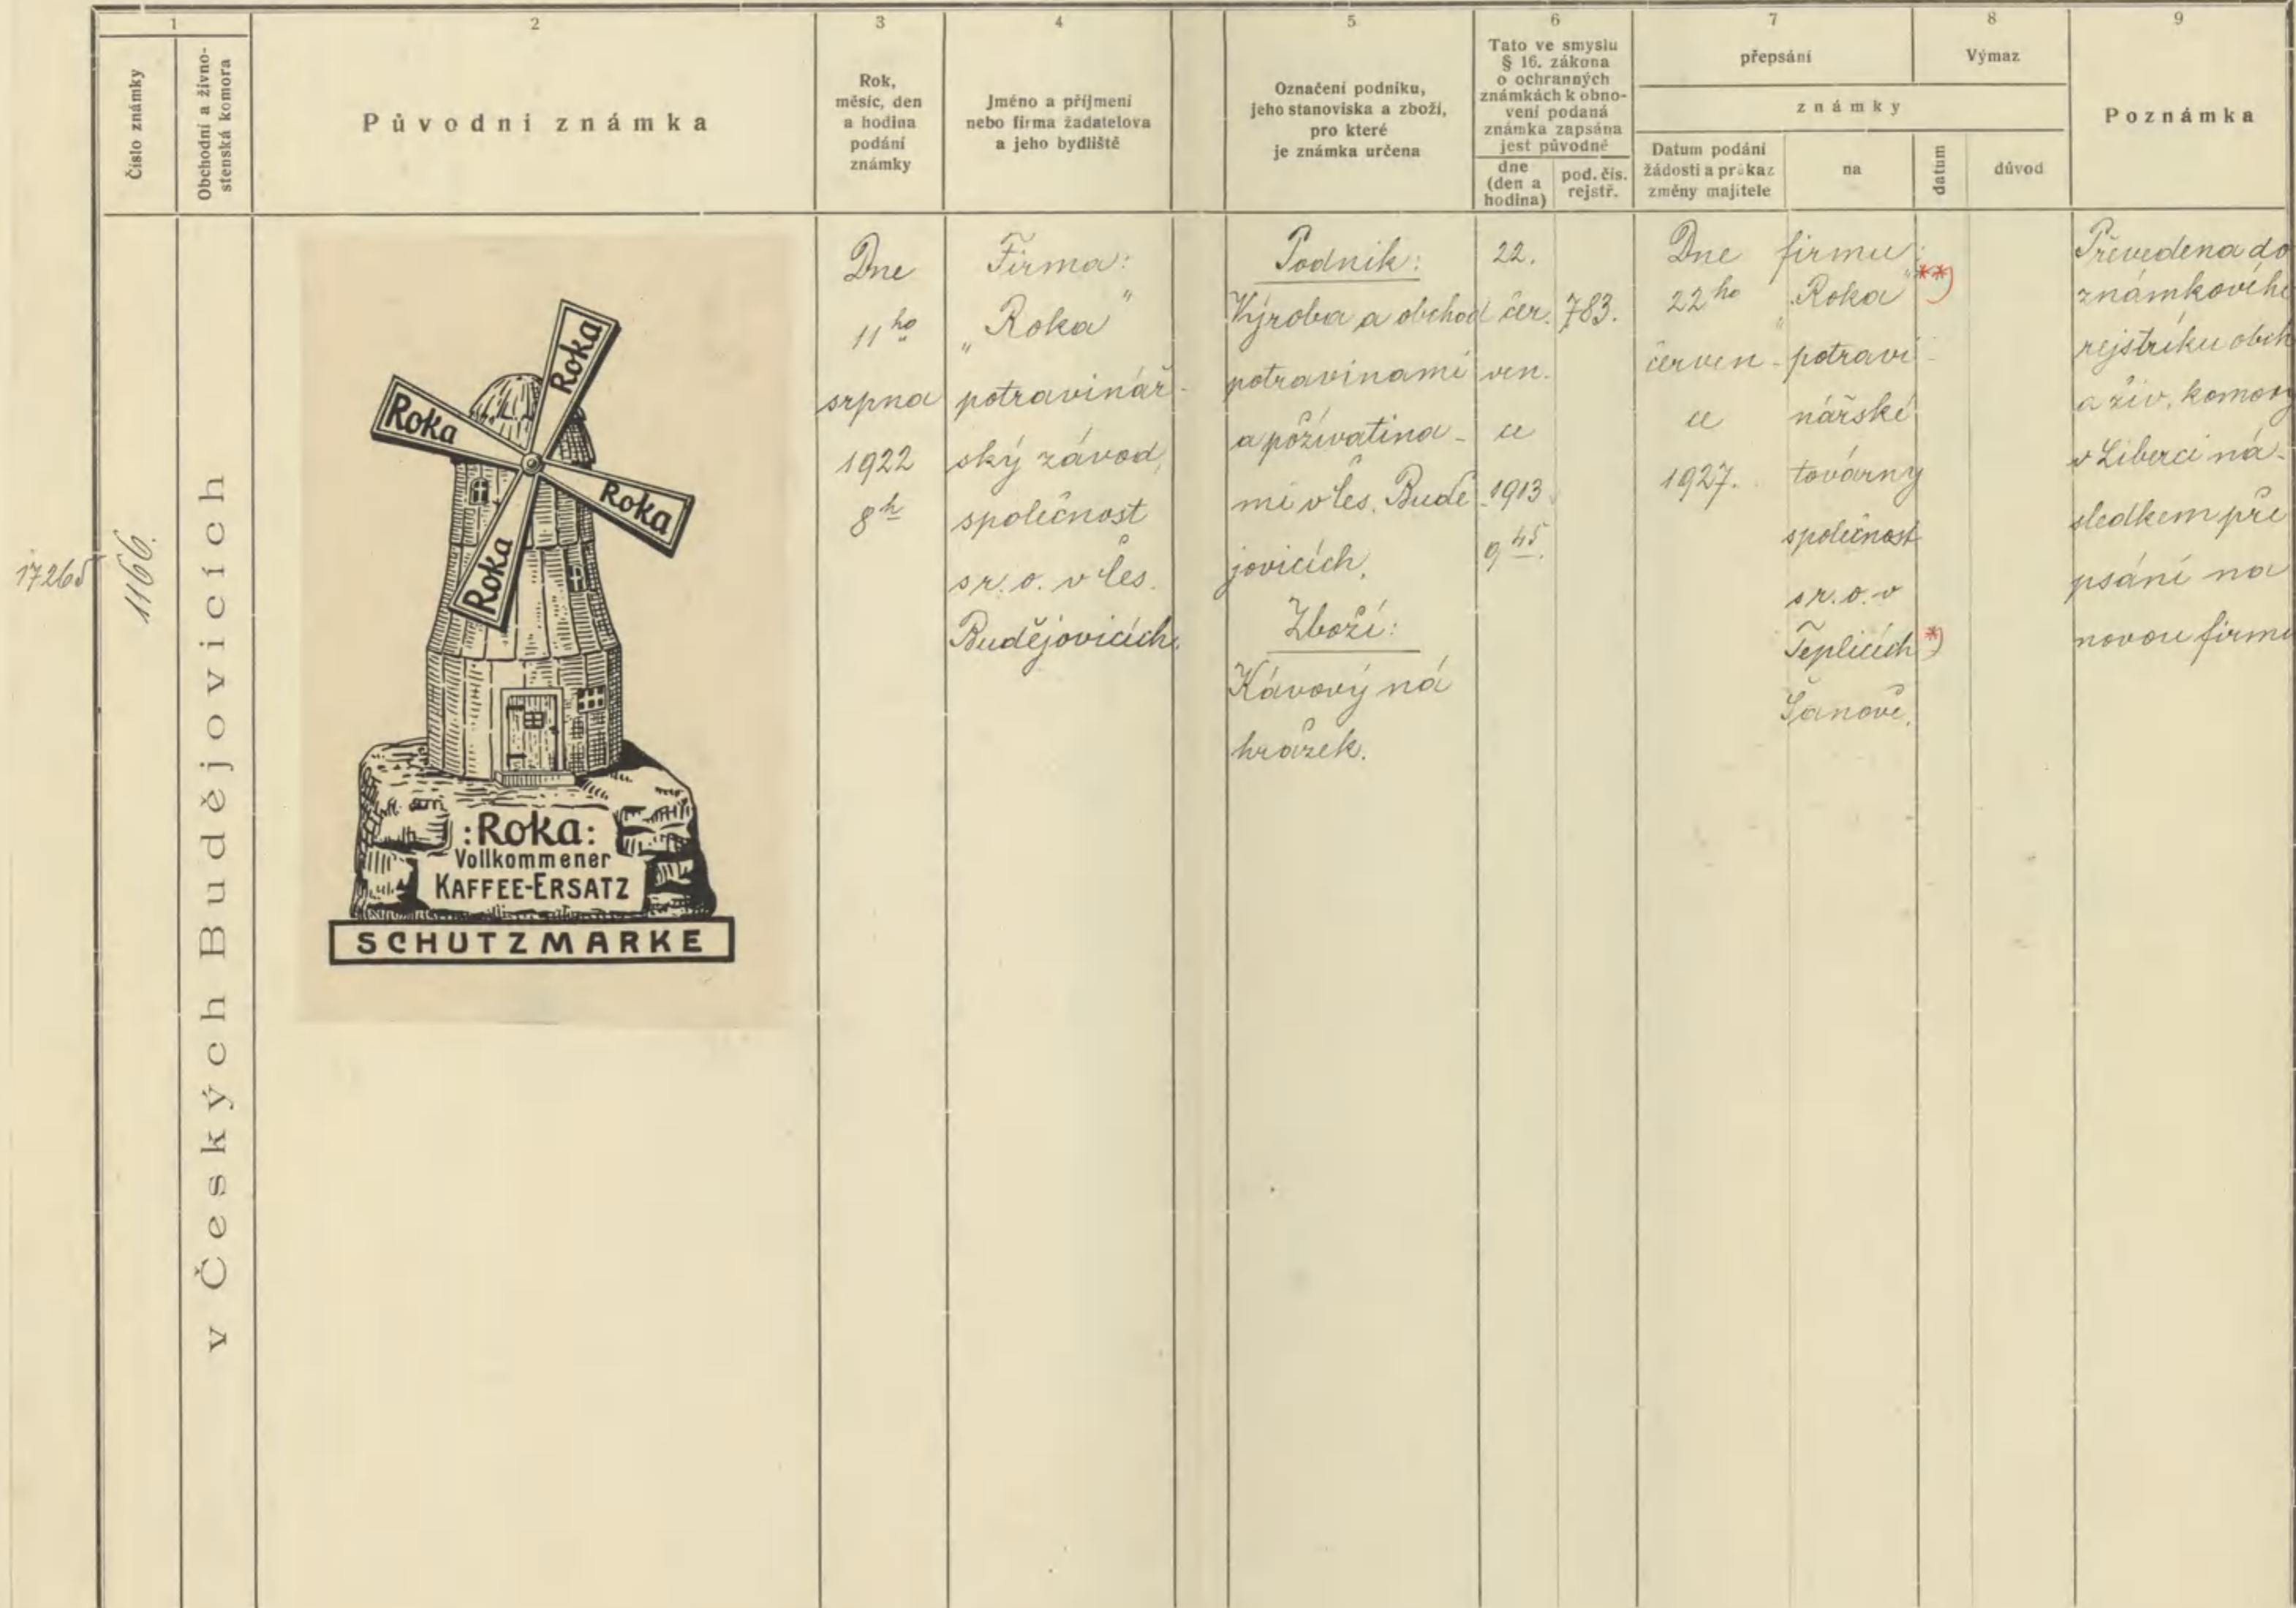 1
Číslo známky
Obchodní a živno-
stenská komora
2
Původní známka
3
Rok,
měsíc, den
a hodina
podání
známky
4
Jméno a příjmení
nebo firma žadatelova
a jeho bydliště
5
Označení podniku,
jeho stanoviska a zboží,
pro které
je známka určena
6
Tato ve smyslu
§ 16. zákona
o ochranných
známkách k obno-
vení podaná
známka zapsána
jest původně
dne
(den a
hodina)
pod. čís.
rejstř.
7
přepsání
8
Výmaz
známky
Datum podání
žádosti a průkaz
změny majitele
na
datum
důvod
9
Poznámka
17265
1166.
v Českých Budějovicích
Roka
Roka
Roka
Roka
:Roka:
Vollkommener
KAFFEE-ERSATZ
SCHUTZMARKE
Dne
11ho
srpna
1922
8h
Firma:
„Roka"
potravinář-
ský závod,
společnost
sr. o. v Čes.
Budějovicích.
Podnik:
Výroba a obchod
potravinami
a poživatina-
mi v Čes. Budě
jovicích.
Zboží:
Kávový ná
hražek.
22.
čer.
ven-
ce
1913
9 45.
783.
Dne
22ho
červen-
ce
1927.
firmu:
„Roka" **)
potravi-
nářské
továrny
společnost
sr. o. v
Teplicích *)
Šanově.
Převedena do
známkového
rejstříku obch
a živ. komory
v Liberci ná-
sledkem pře
psání na
novou firmu